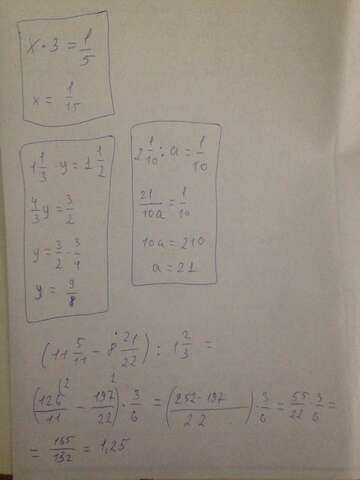 x · 3 = 1/5
x = 1/15
1 1/3 · y = 1 1/2
4/3 y = 3/2
y = 3/2 · 3/4
y = 9/8
2 1/10 : a = 1/10
21/10a = 1/10
10a = 210
a = 21
(11 5/11 - 8 21/22) : 1 2/3 =
(126/11 - 197/22) · 3/6 = (252-197/22) · 3/6 = 55/22 · 3/6 =
= 165/132 = 1,25